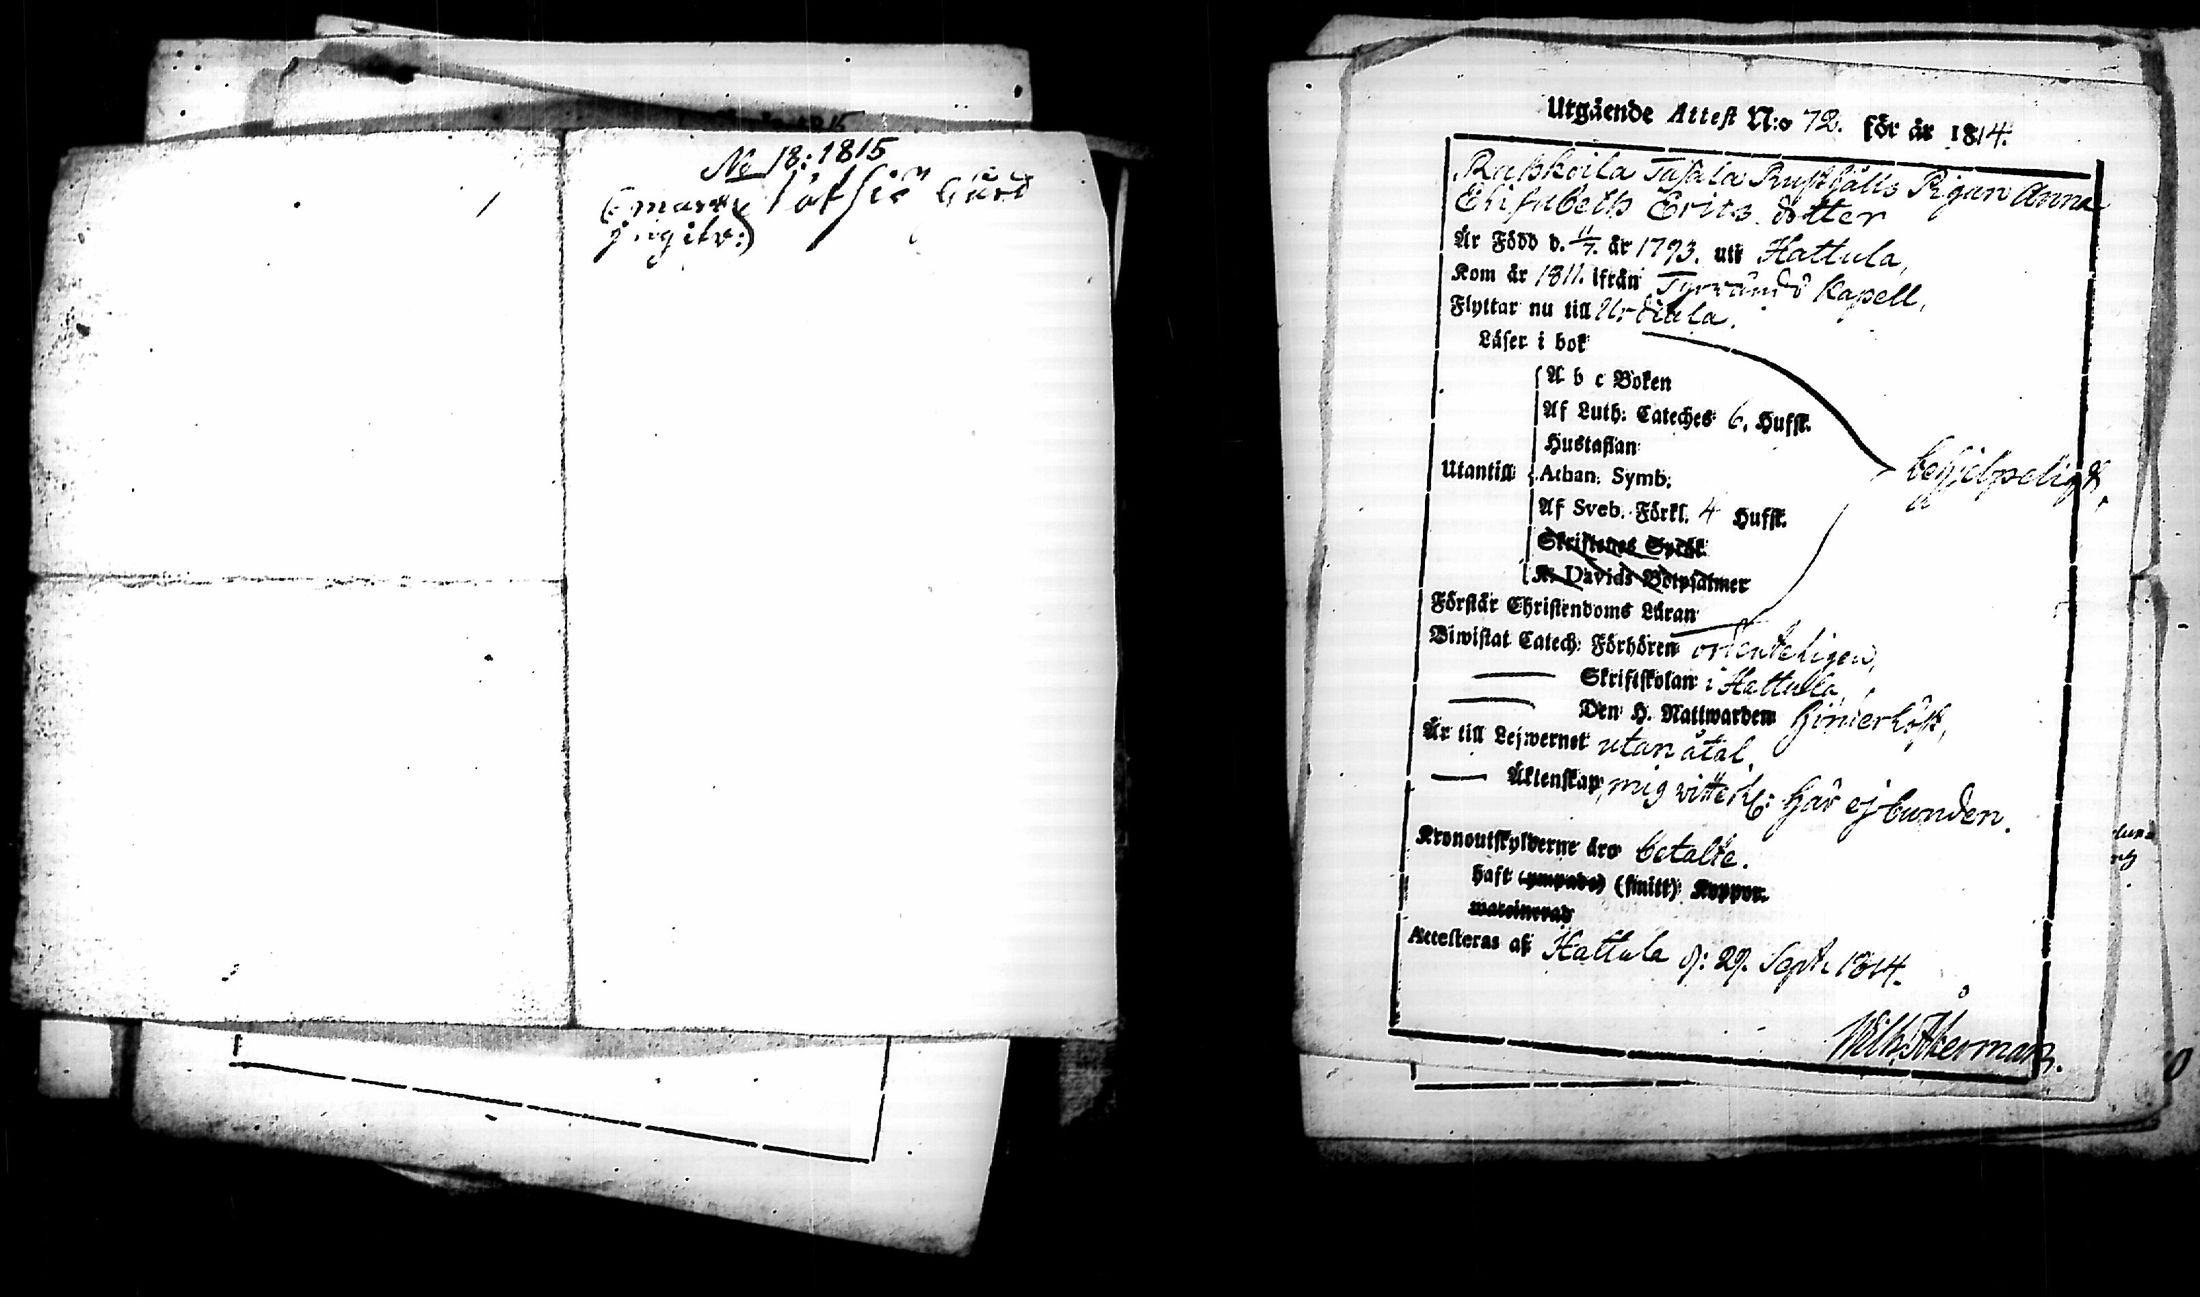 No 18:1815
Utgående Attest N:o 72. för år 1814.
Rustholls Pigan Anna
Elisabeth Erics dotter
Är Född d. 11/7. år 1793. uti Hattula,
Kom år 1811. ifrån Tyrvändö Kapell,
Flyttar nu till Urdiala.
Läser i bok
A b c Boken
Af Luth: Cateches 6. Hufst.
Hustaflan
Utantill Athan. Symb.
behjelpeligt,
Af Sveb. Förkl. 4 Hufst.
Skriftenes Språk
K. Davids Botpsalmer
Förstår Christendoms Läran
Biwistat Catech: Förhören ordenteligen,
Skriftskolan i Hattula,
Den H. Nattwarden
Är till Lejwernet utan åtal.
Äktenskap, mig witterl: här ej bunden.
Kronoutskylderne äro betalte.
haft (ympade) (smitt) Koppor.
waccinerad
Attesteras af Hattula d: 29. Sept. 1814.
Wilh. Åkerman.